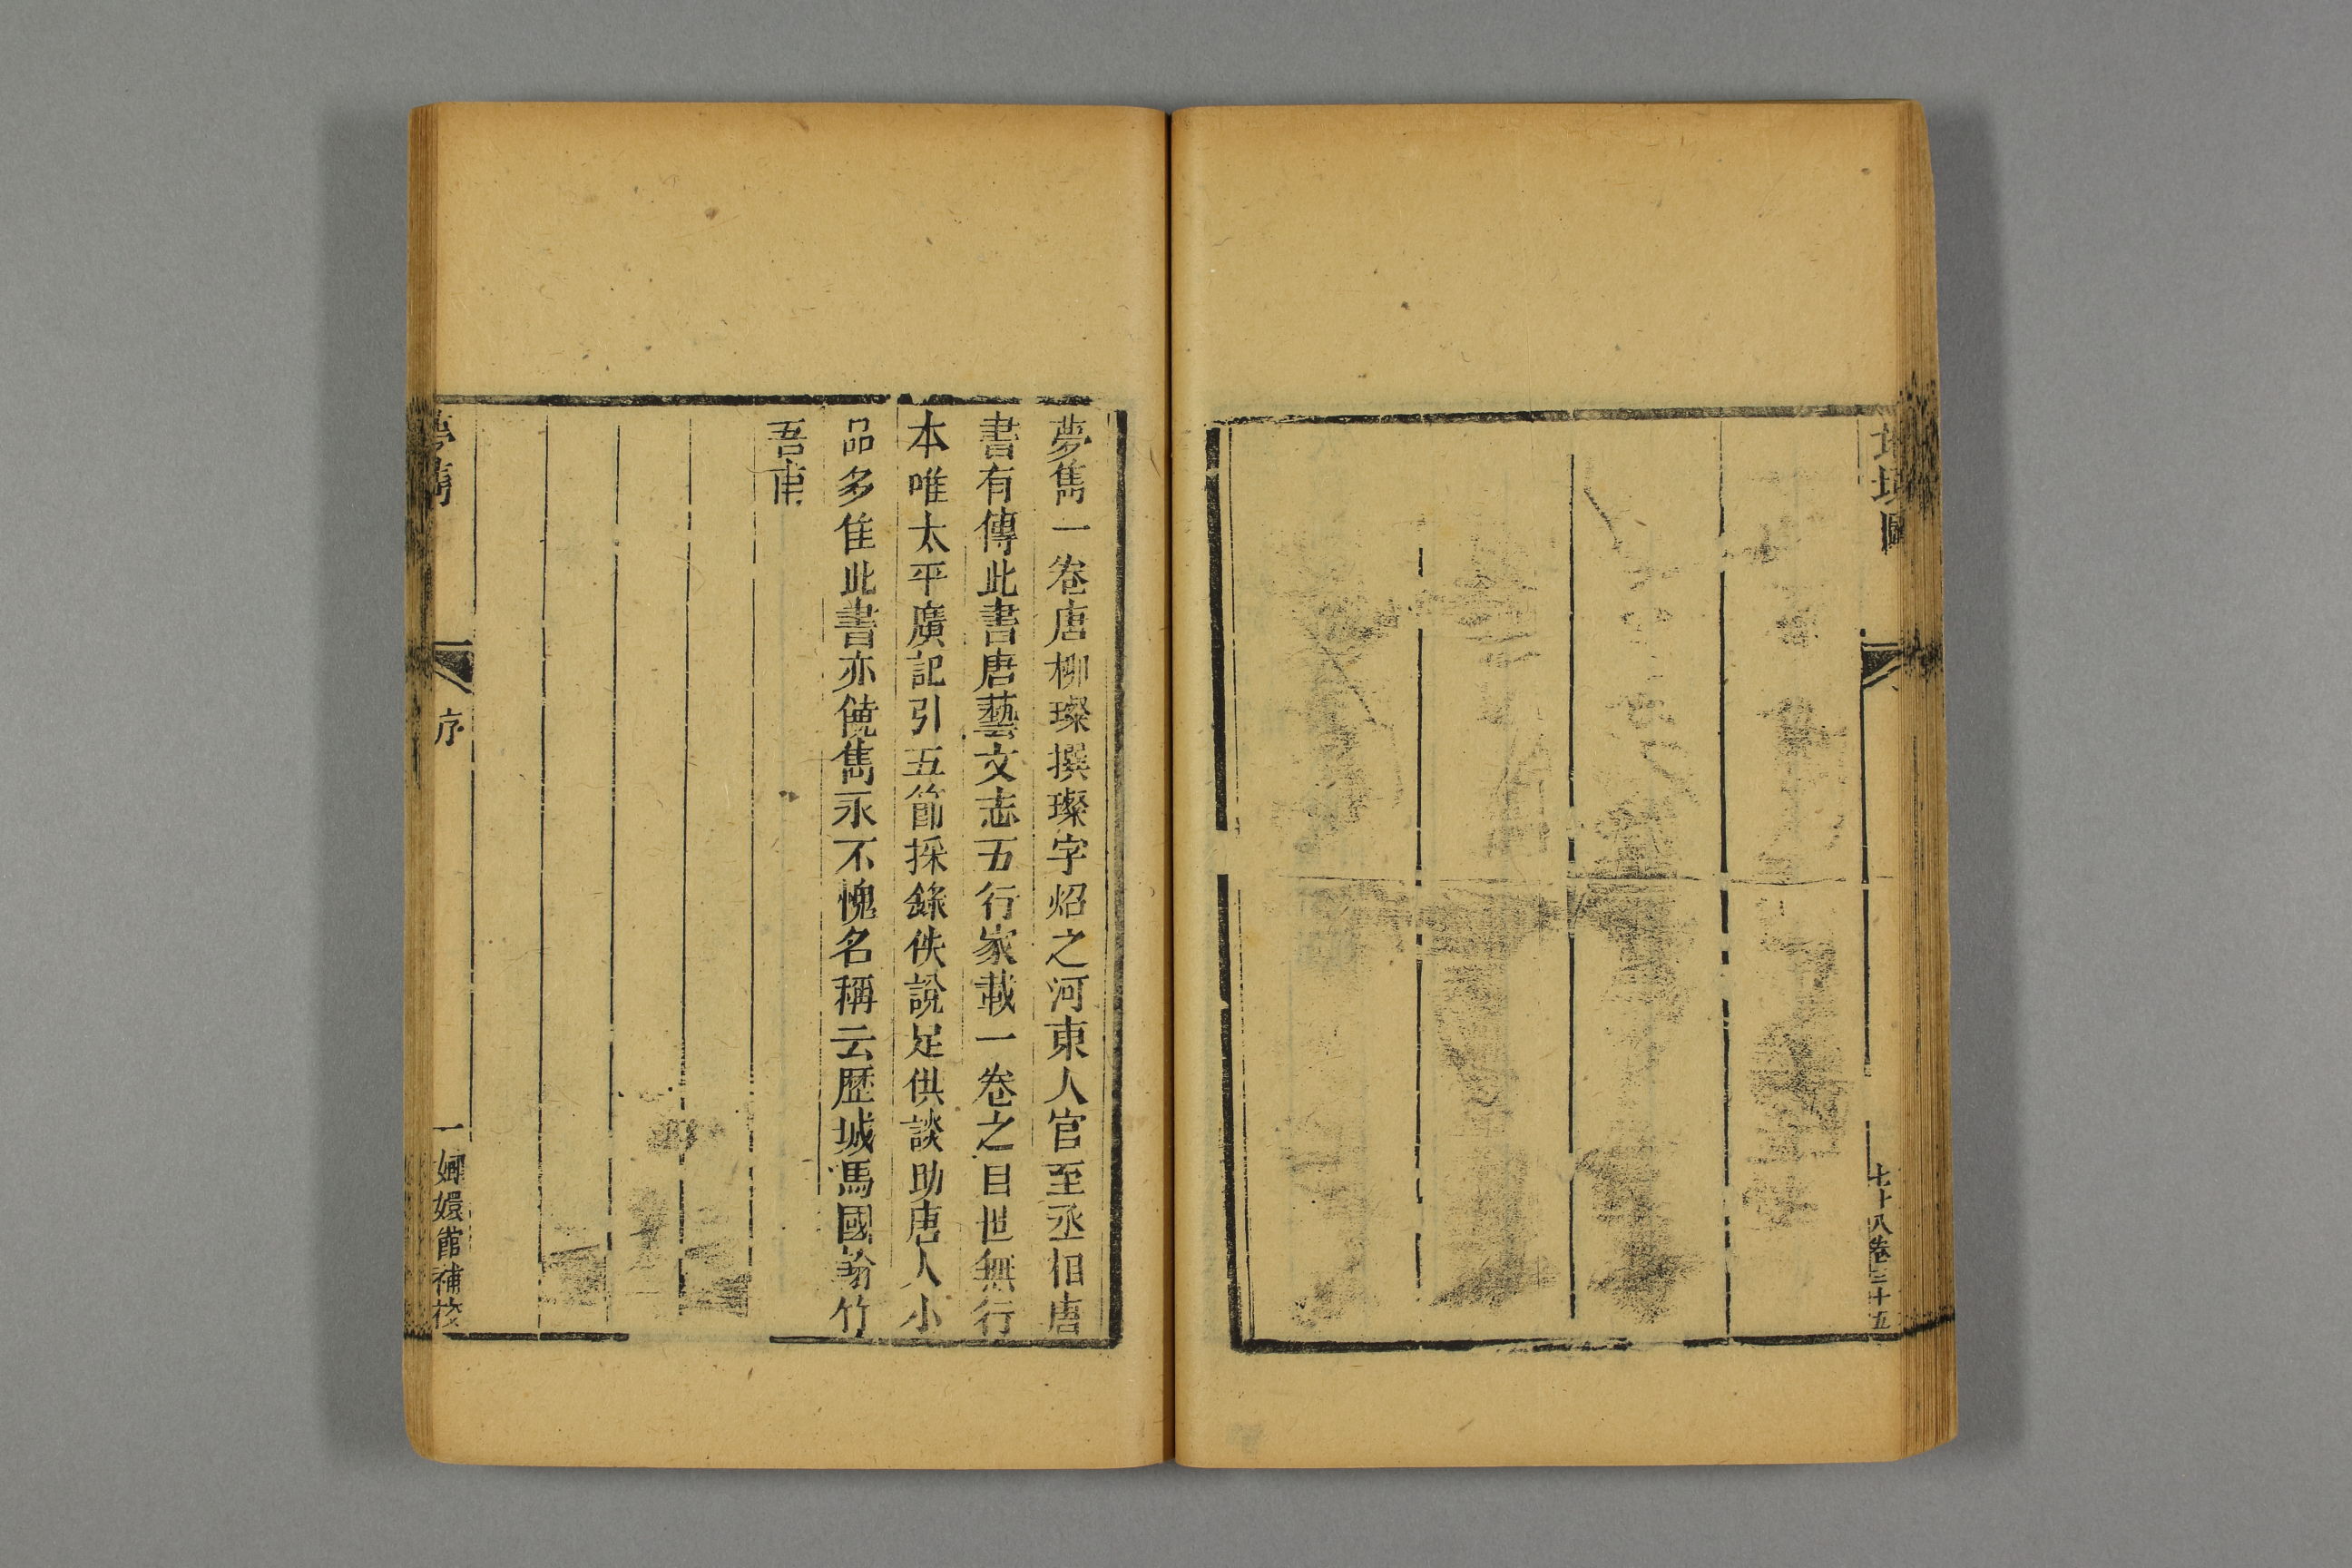 七十八卷三十五
夢雋一卷唐柳璨撰璨字炤之河東人官至丞相唐
書有傳此書唐藝文志五行家載一卷之目世無行
本唯太平廣記引五節採錄佚說足供談助唐人小
品多隹此書亦饒雋永不愧名稱云歷城馬國翰竹
吾甫
夢雋
序
一
嫏嬛館補校